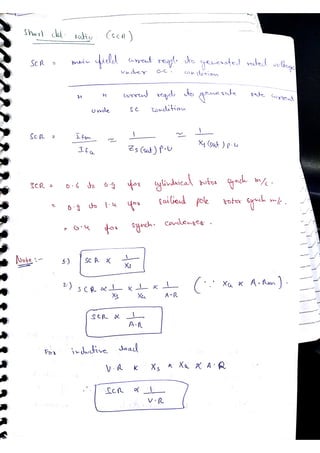 Short ckt. ratio (SCR)
SCR = main field current reqd. to generated rated voltage
under o.c. condition
" " current reqd. to generate rate current
unde SC condition
SCR = Ifm / Ifa = 1 / Zs (sat) p.u = 1 / Xs (sat) p.u
SCR = 0.6 to 0.9 for cylindrical rotor synch m/c.
= 0.9 to 1.4 for sailiend pole rotor synch m/c.
= 0.4 for synch. condenser.
Note :- 1.) SCR ∝ 1/Xs
2.) SCR ∝ 1/Xs ∝ 1/Xa ∝ 1/A-R (∵ Xa ∝ A-Rean).
SCR ∝ 1/A-R
For inductive load
V.R ∝ Xs ∝ Xa ∝ A.R
∴ SCR ∝ 1/V.R